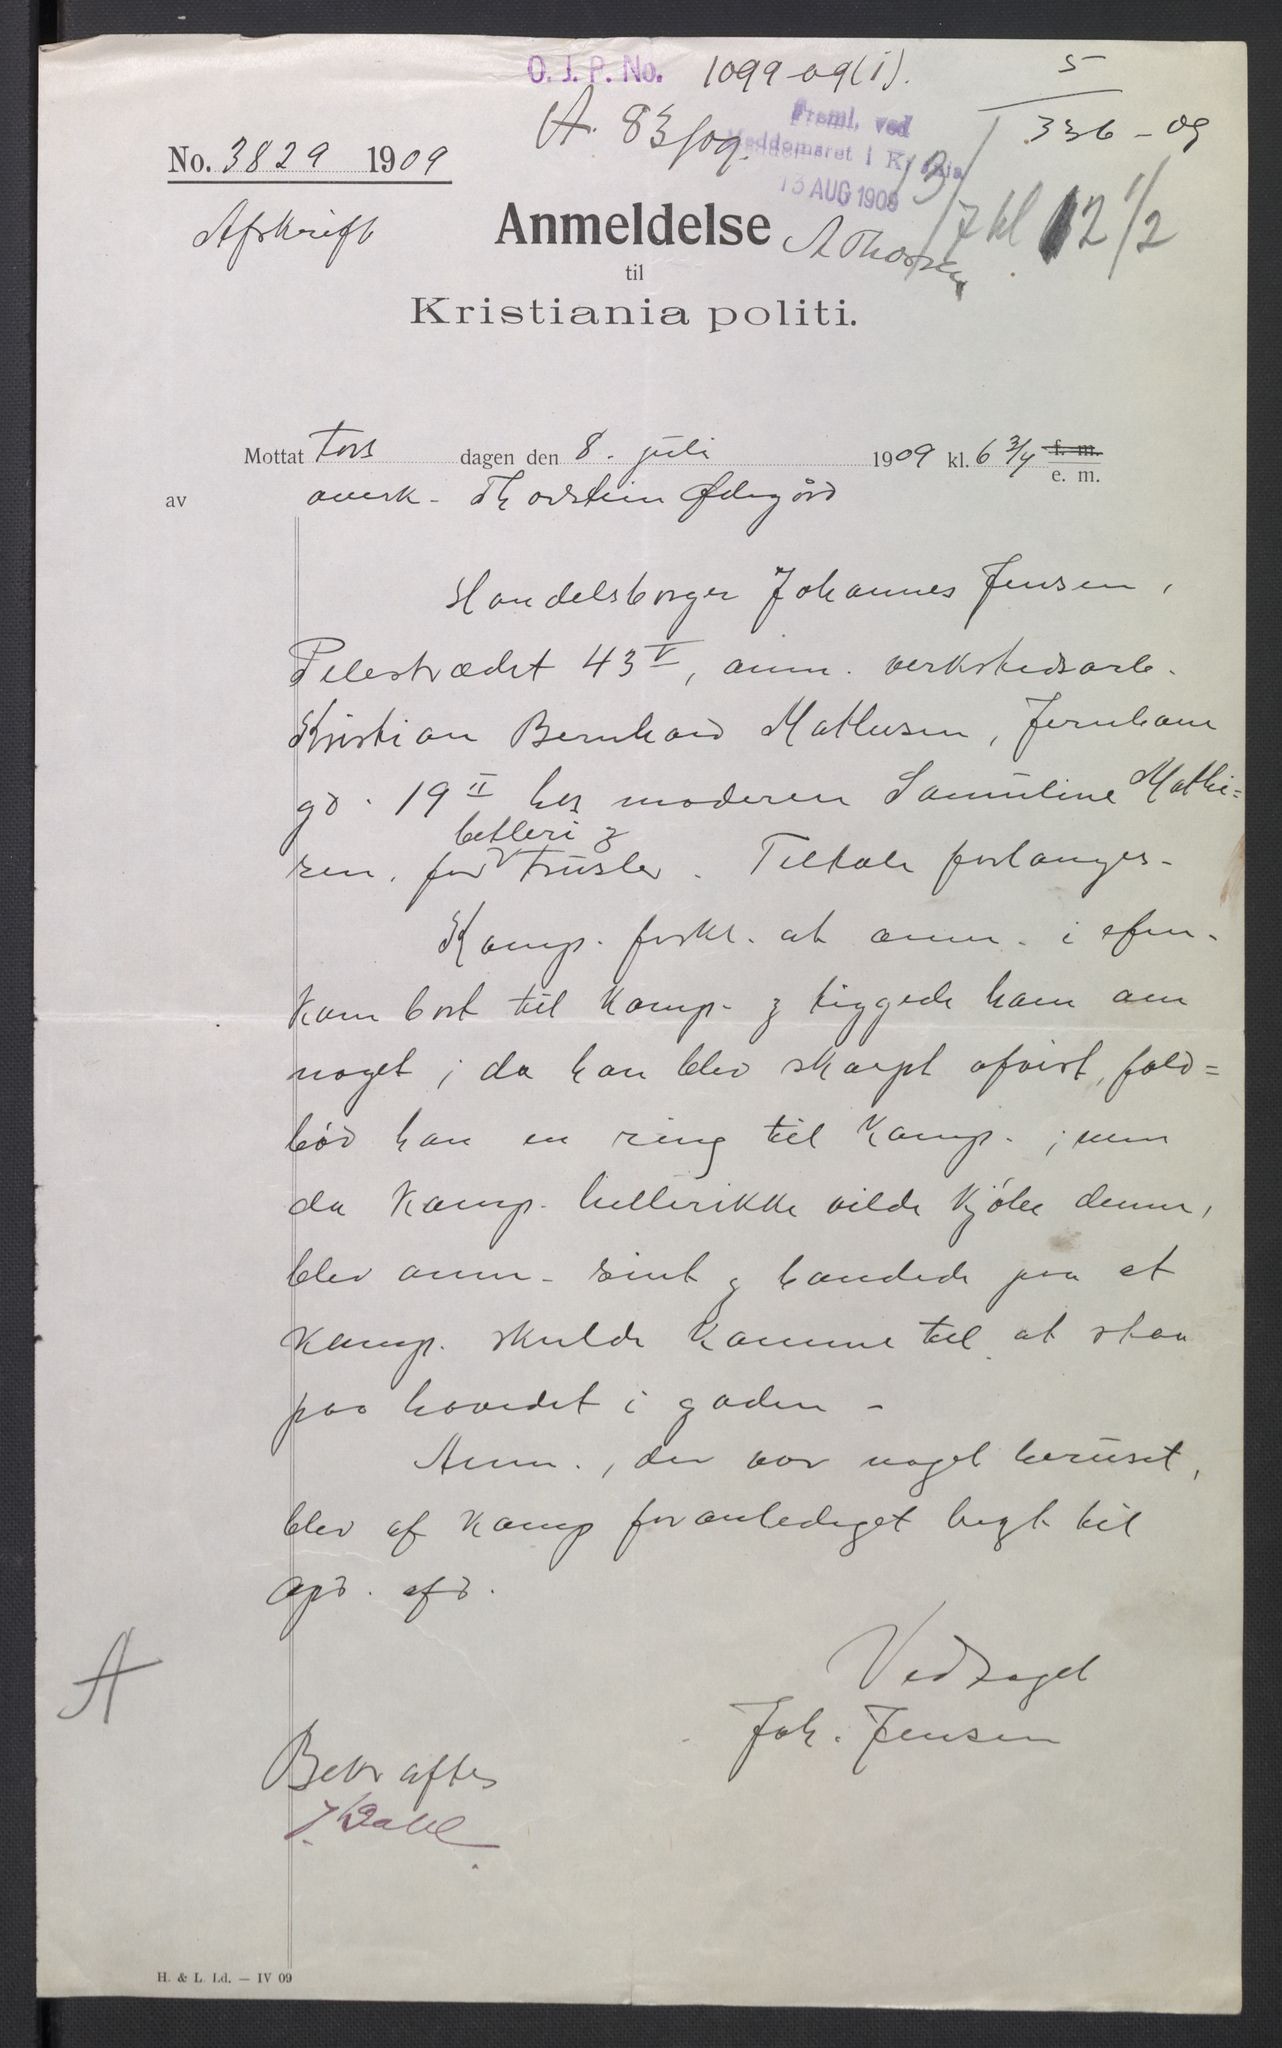 O. J. P. No. 1099-09(i).
5
336-09
A. 83/09.
Freml. ved
Meddomsret i Kr.ania
13 AUG 1909
13/7 kl 12 1/2
No. 3829 1909
Afskrift
Anmeldelse
A Thorsen
til
Kristiania politi.
Mottat Tors dagen den 8. juli 1909 kl. 6 3/4 f. m.
e. m.
av overk. Thorstein Ødegård
Handelsborger Johannes Jensen,
Pilestrædet 43 V, anm. verkstedsarb.
Kristian Bernhard Mathisen, Jernbane
gd. 19 II hos moderen Samuline Mathi=
betleri &
sen, for trusler. Tiltale forlanges.
Komp. forkl. at anm. i efm.
kom bort til komp. & tiggede ham om
noget; da han blev skarpt afvist, fald=
bød han en ring til komp.; men
da komp. hellerikke vilde kjøbe denne,
blev anm. sint & truede paa at
komp. skulde komme til at staa
paa hovedet i gaden.
Anm., der var noget beruset,
blev af komp foranlediget bragt til
opd. afd.
Vedtaget
Joh. Jensen
A
Bekræftes
J. Dahl
H. & L. Ld. — IV 09